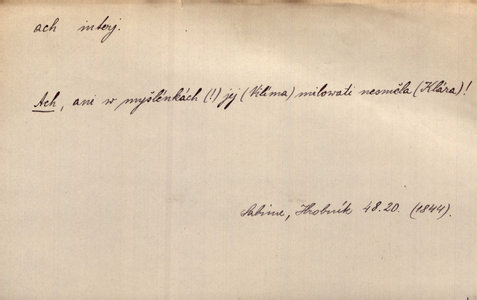 ach interj.
Ach, ani w myšlénkách (!) jej (Klíma) milowati nesměla (Klára)!
Sabina, Hrobník 48.20. (1844).